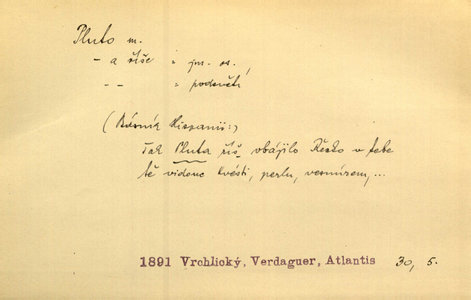 Pluto m.
- a říše = jm. m.,
- - = podsvětí
(Básník Hispanii:)
Tak Pluta říš obájilo Řecko v tobě
tě vidouc kvésti, perlu, vesmírem,...
1891 Vrchlický, Verdaguer, Atlantis 30, 5.